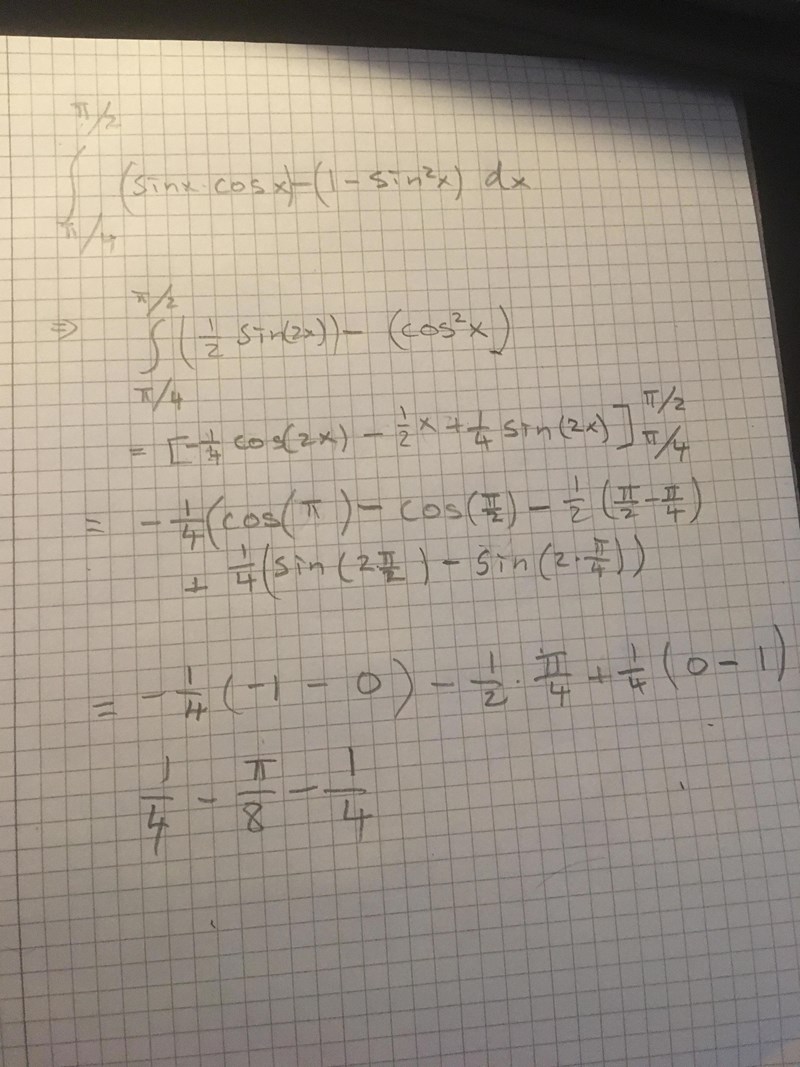 ∫_{π/4}^{π/2} (sinx · cosx) − (1 − sin²x) dx
⇒ ∫_{π/4}^{π/2} (1/2 sin(2x)) − (cos²x)
= [−1/4 cos(2x) − 1/2 x + 1/4 sin(2x)]_{π/4}^{π/2}
= −1/4 (cos(π) − cos(π/2) − 1/2 (π/2 − π/4)
+ 1/4 (sin(2π/2) − sin(2·π/4))
= −1/4 (−1 − 0) − 1/2 · π/4 + 1/4 (0 − 1)
1/4 − π/8 − 1/4